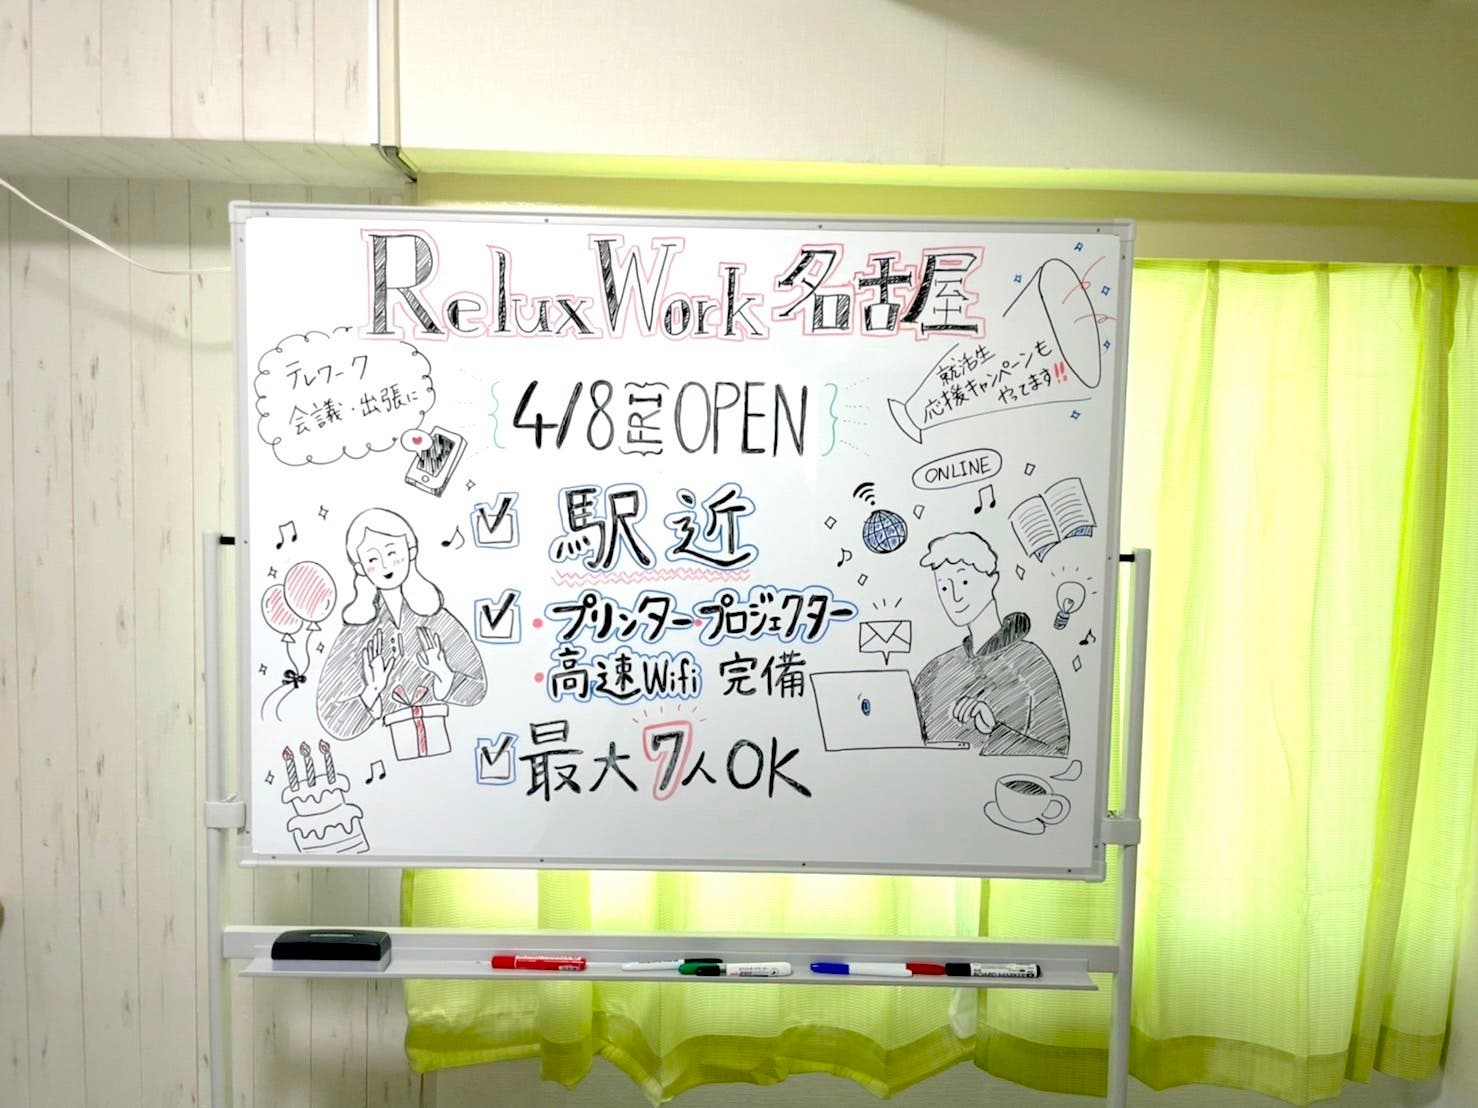 ReluxWork 名古屋
テレワーク
会議・出張に
4/8 FRI OPEN
就活生
応援キャンペーンも
やってます!!
ONLINE
駅近
・プリンター・プロジェクター
・高速Wifi 完備
最大7人OK